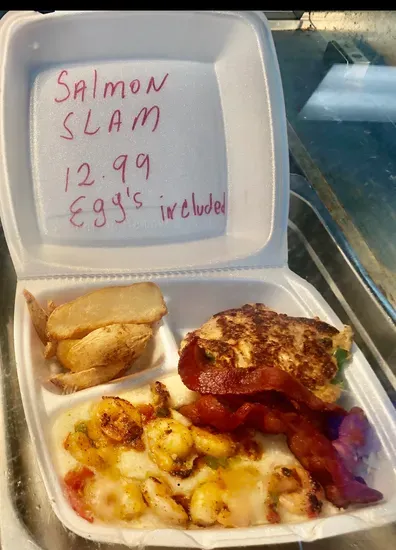 SAlMON
SLAM
12.99
Egg's included